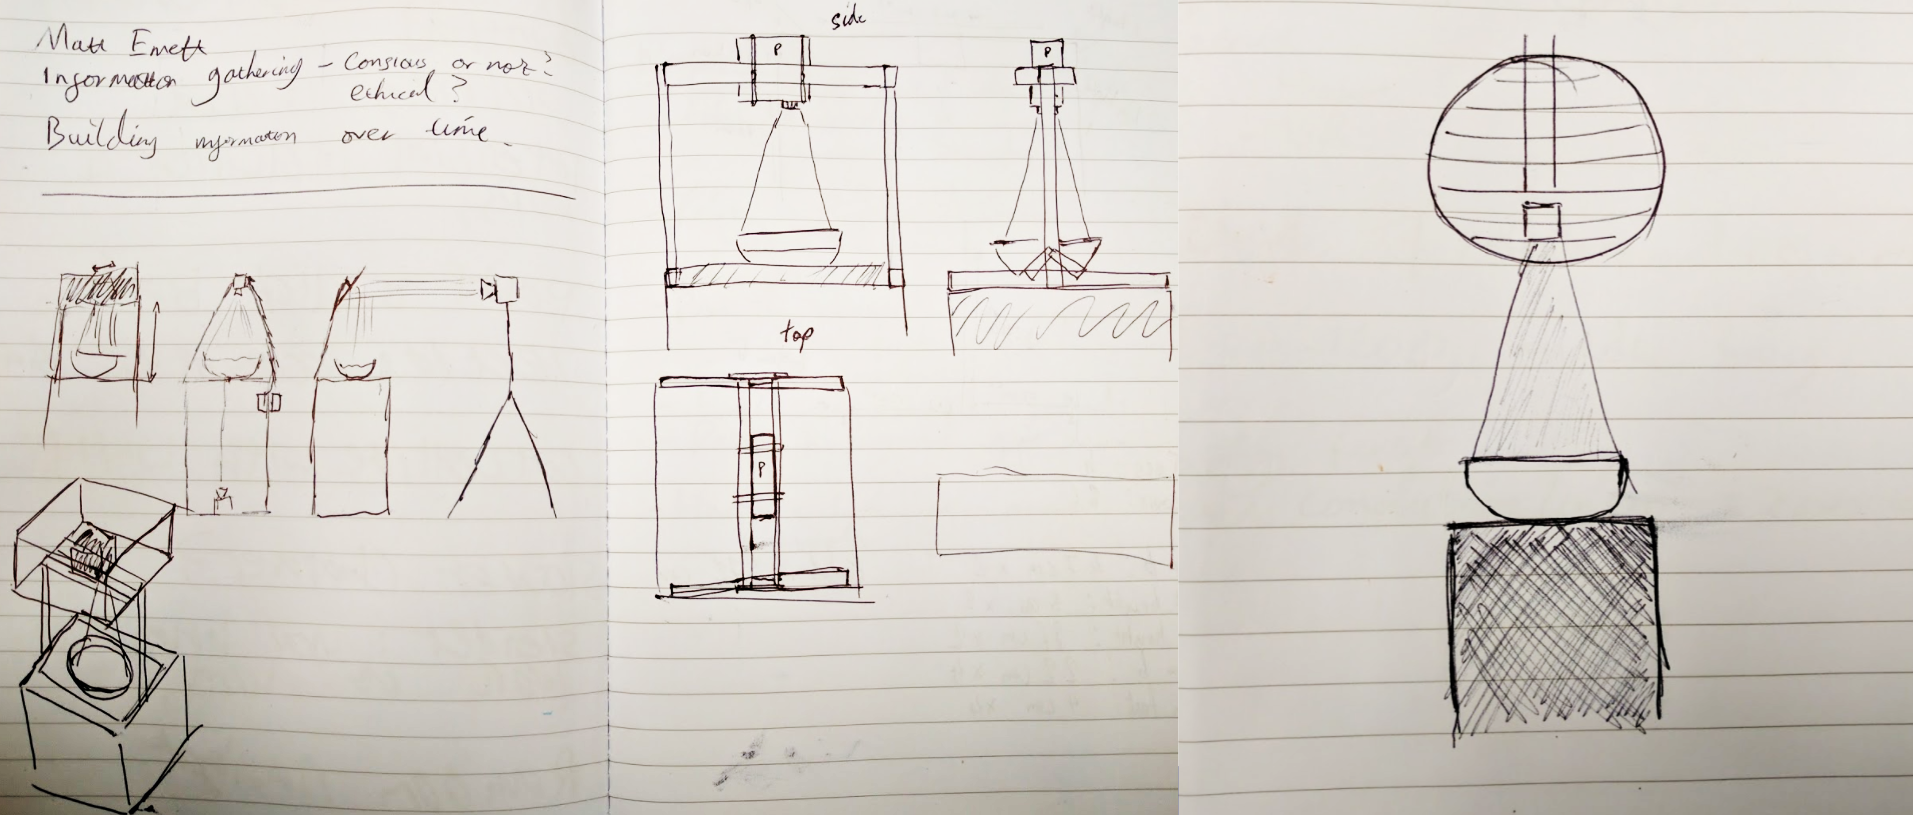 Matt Emett
Information gathering - Consious or not?
ethical?
Building information over time.
side
P
P
top
P